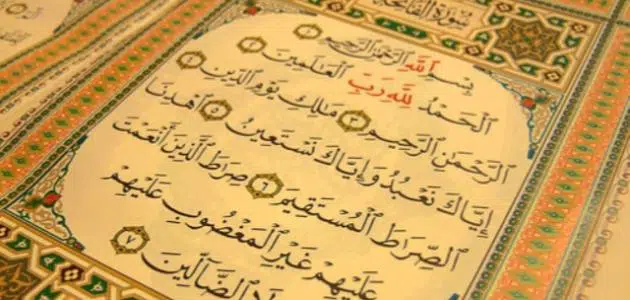 سُورَةُ الْفَاتِحَةِ
بِسْمِ ٱللَّهِ ٱلرَّحْمَٰنِ ٱلرَّحِيمِ ١
ٱلْحَمْدُ لِلَّهِ رَبِّ ٱلْعَٰلَمِينَ ٢
ٱلرَّحْمَٰنِ ٱلرَّحِيمِ ٣ مَٰلِكِ يَوْمِ ٱلدِّينِ ٤
إِيَّاكَ نَعْبُدُ وَإِيَّاكَ نَسْتَعِينُ ٥ ٱهْدِنَا
ٱلصِّرَٰطَ ٱلْمُسْتَقِيمَ ٦ صِرَٰطَ ٱلَّذِينَ أَنْعَمْتَ
عَلَيْهِمْ غَيْرِ ٱلْمَغْضُوبِ عَلَيْهِمْ
ٱلضَّآلِّينَ ٧